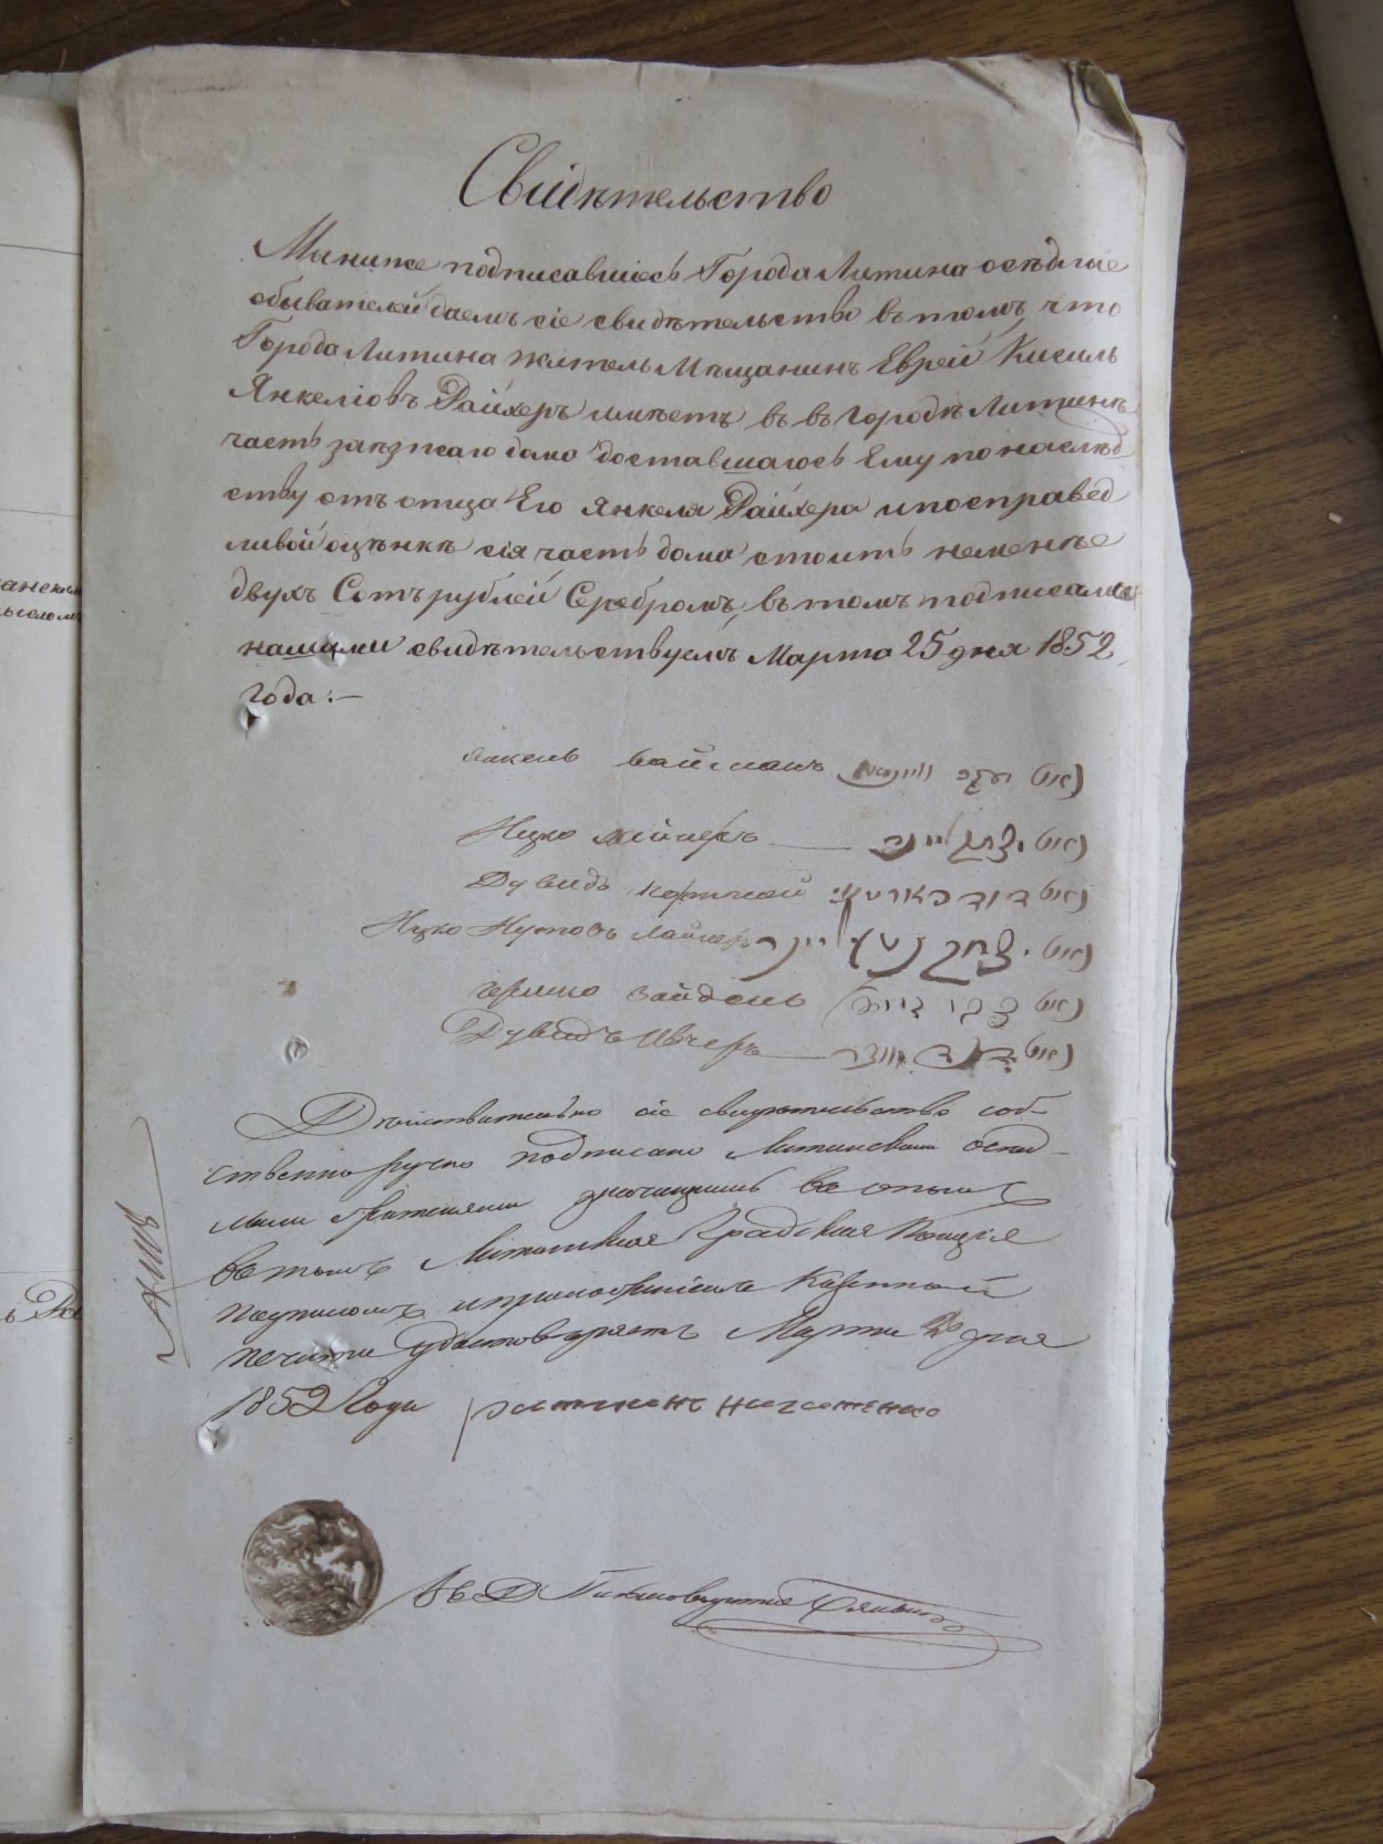 Свидѣтельство
Мы ниже подписавшіесь Города Литина осѣдлые
обывателей даемъ сіе свидѣтельство въ томъ, что
Города Литина житель Мѣщанинъ Еврей Кисиль
Янкеліовъ Райхеръ имѣетъ въ въ городѣ Литинѣ
часть заѣзжаго дома доставшаюсь Ему по наслѣд
ству отъ отца Его Янкеля Райхера и по справед
ливой оцѣнкѣ сія часть дома стоитъ неменѣе
двухъ Сотъ рублей Серебромъ, въ томъ подписами
нашими свидѣтельствуемъ Марта 25 дня 1852
года:—
Янкель Вайсманъ נאום יעקב
Ицко Лейнеръ נאום יצחק ליינר
Дувидъ Портной נאום דוד פארטנוי
Ицко Нутовъ Лайнеръ נאום יצחק נטע ליינר
Зайдель נאום
Дувидъ Ивчеръ נאום דוד
Дѣйствительно сіе свидѣтельство соб-
ственно ручно подписано Литинскими осѣд-
лыми
въ томъ Литинская Градская Полиція
подписомъ и приложеніемъ Казенной
печати удостовѣряетъ Марта дня
1852 Года
Въ Д Письмоводителя